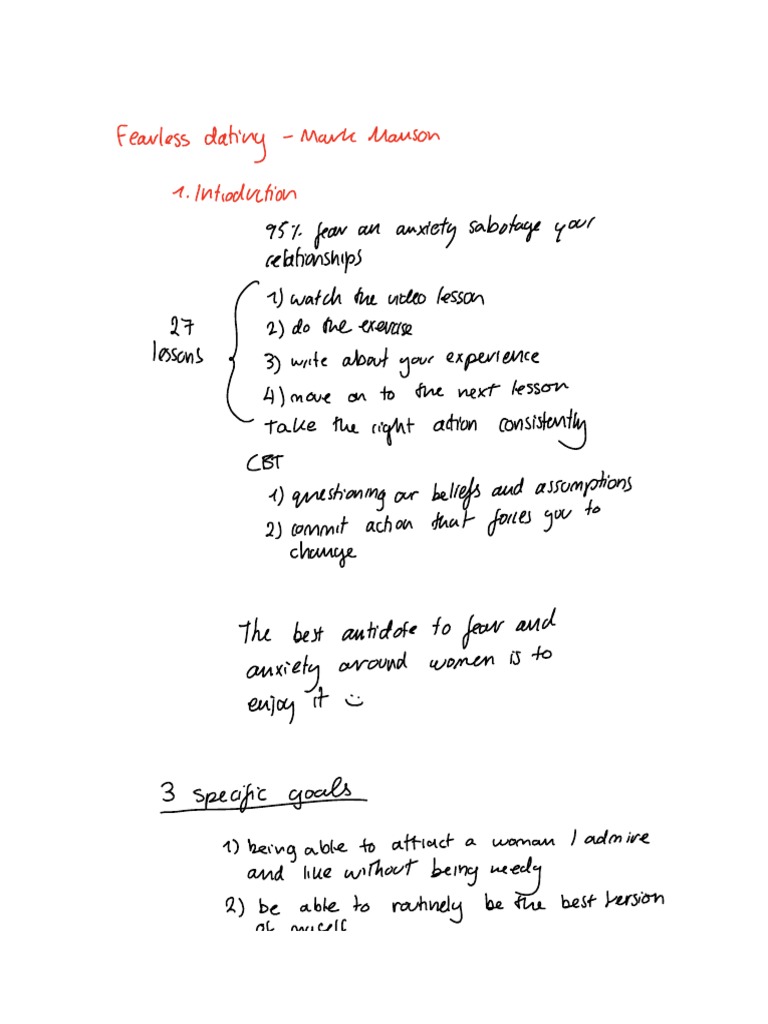 Fearless dating - Mark Manson
1. Introduction
95% fear an anxiety sabotage your
relationships
27
lessons
1) watch the video lesson
2) do the exercise
3) write about your experience
4) move on to the next lesson
take the right action consistently
CBT
1) questioning our beliefs and assumptions
2) commit action that forces you to
change
The best antidote to fear and
anxiety around women is to
enjoy it ☺
3 specific goals
1) being able to attract a woman I admire
and like without being needy
2) be able to routinely be the best version
of myself